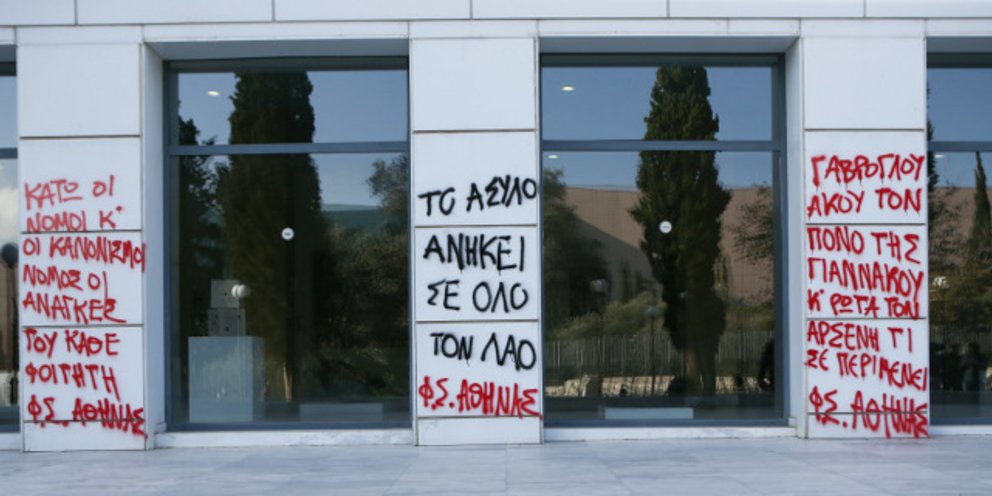 ΚΑΤΩ ΟΙ
ΝΟΜΟΙ Κ'
ΟΙ ΚΑΝΟΝΙΣΜΟΙ
ΝΟΜΟΣ ΟΙ
ΑΝΑΓΚΕΣ
ΤΟΥ ΚΑΘΕ
ΦΟΙΤΗΤΗ
ΦΣ. ΑΘΗΝΑΣ
ΤΟ ΑΣΥΛΟ
ΑΝΗΚΕΙ
ΣΕ ΟΛΟ
ΤΟΝ ΛΑΟ
ΦΣ. ΑΘΗΝΑΣ
ΓΑΒΡΟΓΛΟΥ
ΑΚΟΥ ΤΟΝ
ΠΟΝΟ ΤΗΣ
ΓΙΑΝΝΑΚΟΥ
Κ' ΡΩΤΑ ΤΟΝ
ΑΡΣΕΝΗ ΤΙ
ΣΕ ΠΕΡΙΜΕΝΕΙ
ΦΣ. ΑΘΗΝΑΣ